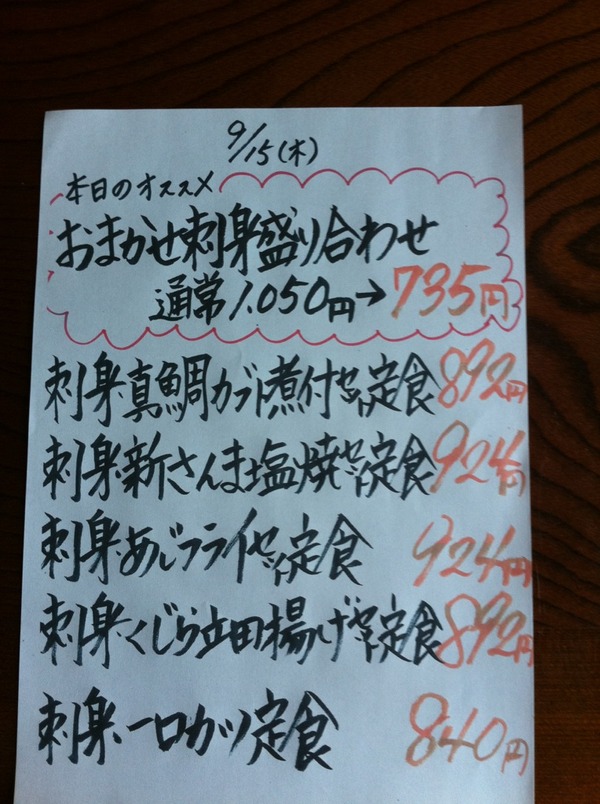 9/15(木)
本日のオススメ
おまかせ刺身盛り合わせ
通常1.050円→735円
刺身・真鯛カブト煮付や定食892円
刺身・新さんま塩焼や定食924円
刺身・あじフライや定食 924円
刺身・くじら立田揚げや定食892円
刺身・一口カツ定食 840円